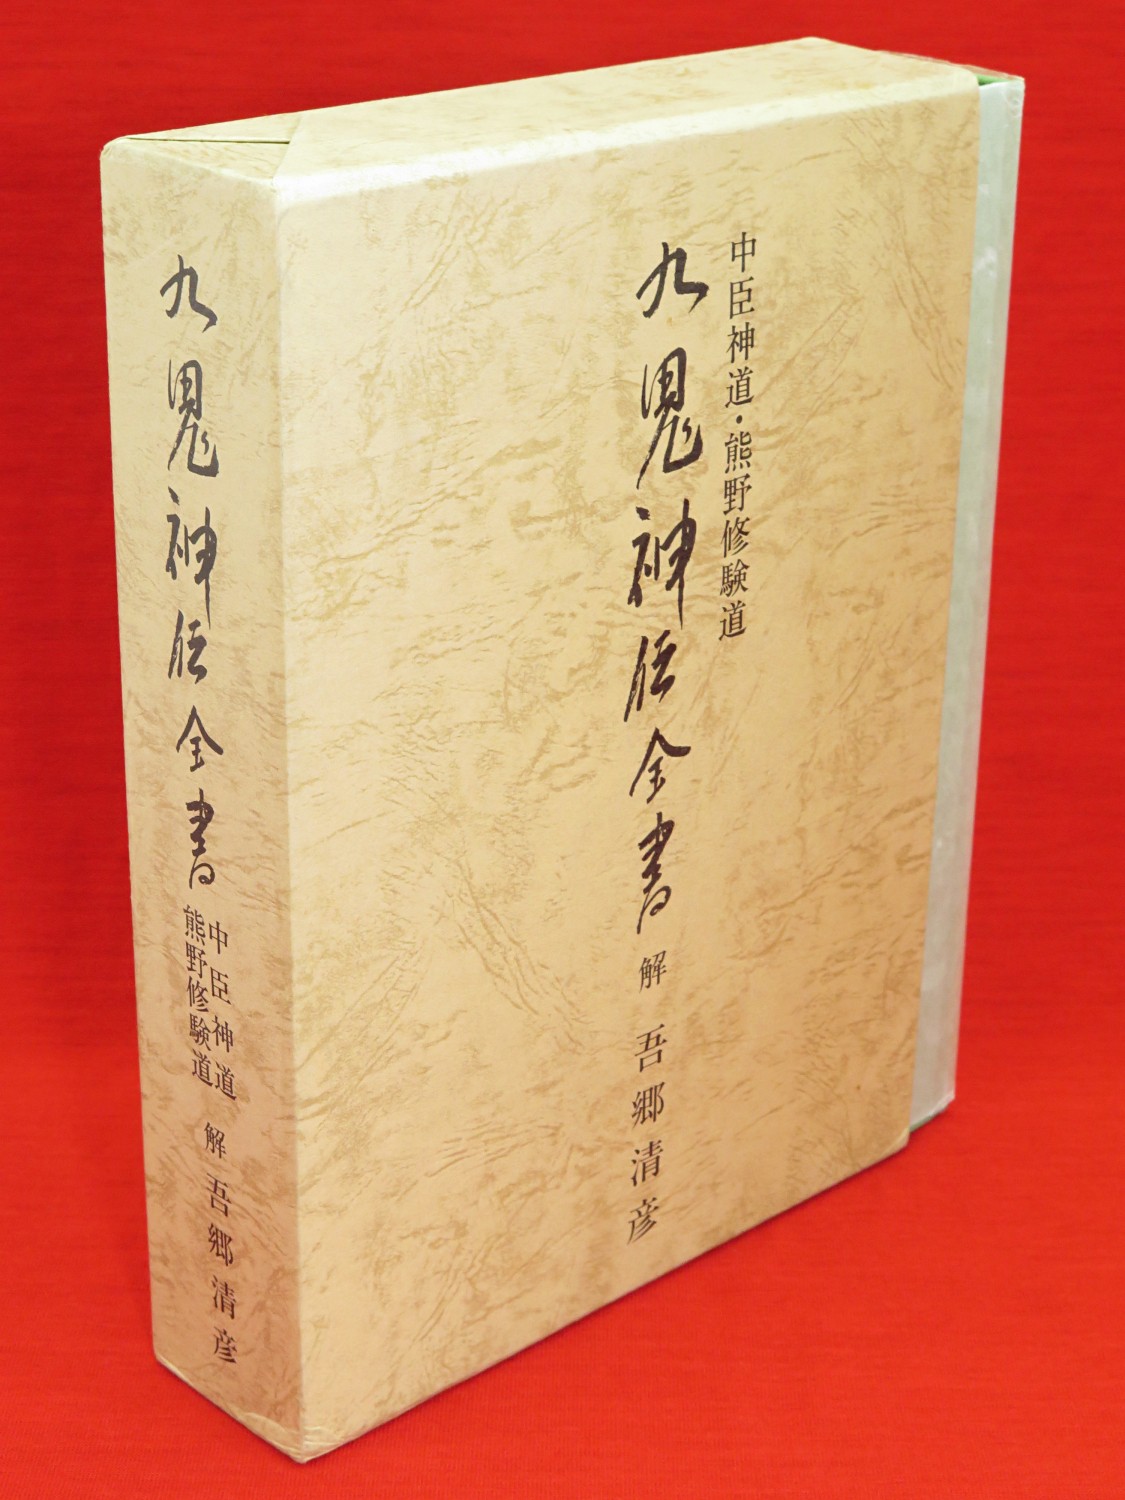 中臣神道・熊野修験道
九鬼神伝全書 解 吾郷清彦
九鬼神伝全書
中臣神道
熊野修験道
解 吾郷清彦